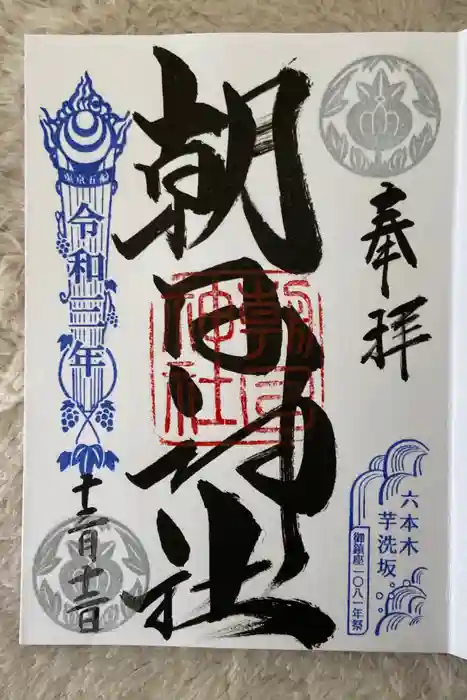 奉拝
六本木
芋洗坂
御鎮座一〇八一年祭
朝日神社
朝日神社
東京五輪
令和三年
十二月十二日